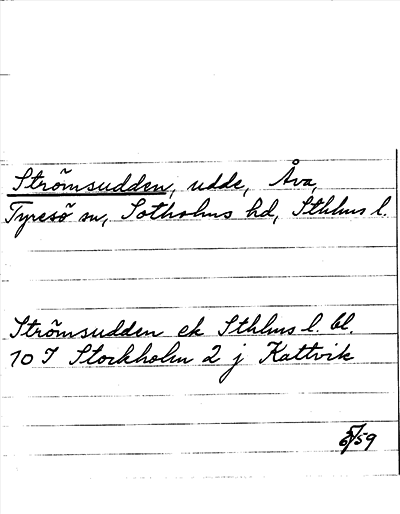 Strömsudden, udde, Åva,
Tyresö sn, Sotholms hd, Sthlms l.
Strömsudden ek Sthlms l. bl.
10 I Stockholm 2 j Kattvik
59